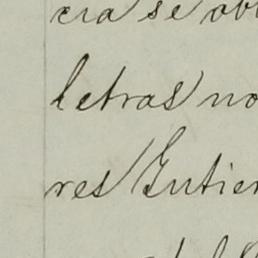 cia se ob
letras no
res Gutier